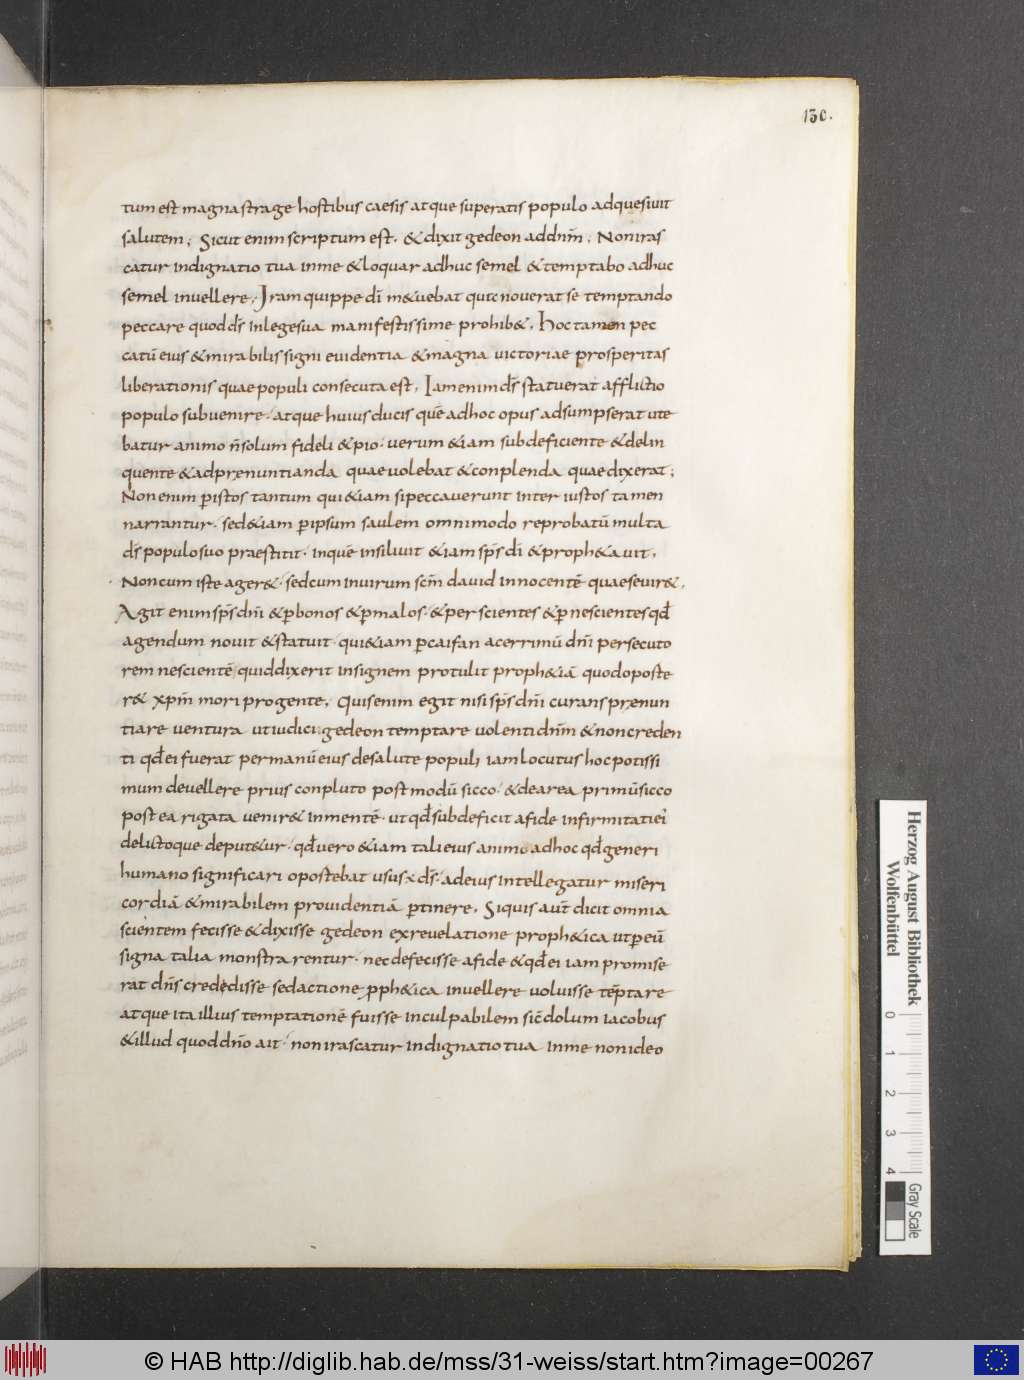 130.
tum est magna strage hostibus caesis atque superatis populo adquesiuit
salutem; Sicut enim scriptum est. & dixit gedeon ad dn̄m; Non iras
catur indignatio tua in me & loquar adhuc semel & temptabo adhuc
semel in uellere; Iram quippe dī m&uebat qui nouerat se temptando
peccare quod dī in lege sua manifestissime prohib&. Hoc tamen pec
catū eius & mirabilis signi euidentia & magna uictoriae prosperitas
liberationis quae populi consecuta est. Iam enim ds̄ statuerat afflicto
populo subuenire. atque huius ducis quē ad hoc opus adsumpserat ute
batur animo n̄ solum fideli & pio. uerum &iam subdeficiente & delin
quente & ad prenuntianda quae uolebat & conplenda quae dixerat;
Non enim p̄ istos tantum qui &iam si peccauerunt inter iustos tamen
narrantur. sed &iam p̄ ipsum saulem omnimodo reprobatū multa
ds̄ populo suo praestitit. in quē insiliuit &iam sps̄ dī & proph&auit.
Non cum iste ager&. sed cum in uirum scm̄ dauid innocentē quae seuir&.
Agit enim sps̄ dn̄i & p̄ bonos & p̄ malos. & per scientes & p̄ nescientes qd̄
agendum nouit & statuit. qui &iam p̄ caifan acerrimū dn̄i persecuto
rem nescientē quid dixerit insignem protulit proph&iā quod oposte
r& xp̄m mori pro gente. Quis enim egit nisi sps̄ dn̄i curans prenun
tiare uentura ut iudici gedeon temptare uolenti dn̄m & non creden
ti qd̄ ei fuerat per manū eius de salute populi iam locutus hoc potissi
mum de uellere prius conpluto postmodū sicco. & de area primū sicco
postea rigata uenir& in mentē. ut qd̄ subdeficit a fide infirmitati ei
delictoque deput&ur. qd̄ uero &iam tali eius animo ad hoc qd̄ generi
humano significari opostebat usus ÷ ds̄. ad eius intellegatur miseri
cordiā & mirabilem prouidentiā p̄tinere. Si quis aut̄ dicit omnia
scientem fecisse & dixisse gedeon ex reuelatione proph&ica ut p̄ eū
signa talia monstrarentur. nec defecisse a fide & qd̄ ei iam promise
rat dn̄s credidisse sed actione pph&ica in uellere uoluisse tēptare
atque ita illius temptationē fuisse inculpabilem sic̄ dolum iacobus
& illud quod dn̄o ait. non irascatur indignatio tua in me non ideo
Herzog August Bibliothek
Wolfenbüttel
0 1 2 3 4
Gray Scale
© HAB http://diglib.hab.de/mss/31-weiss/start.htm?image=00267